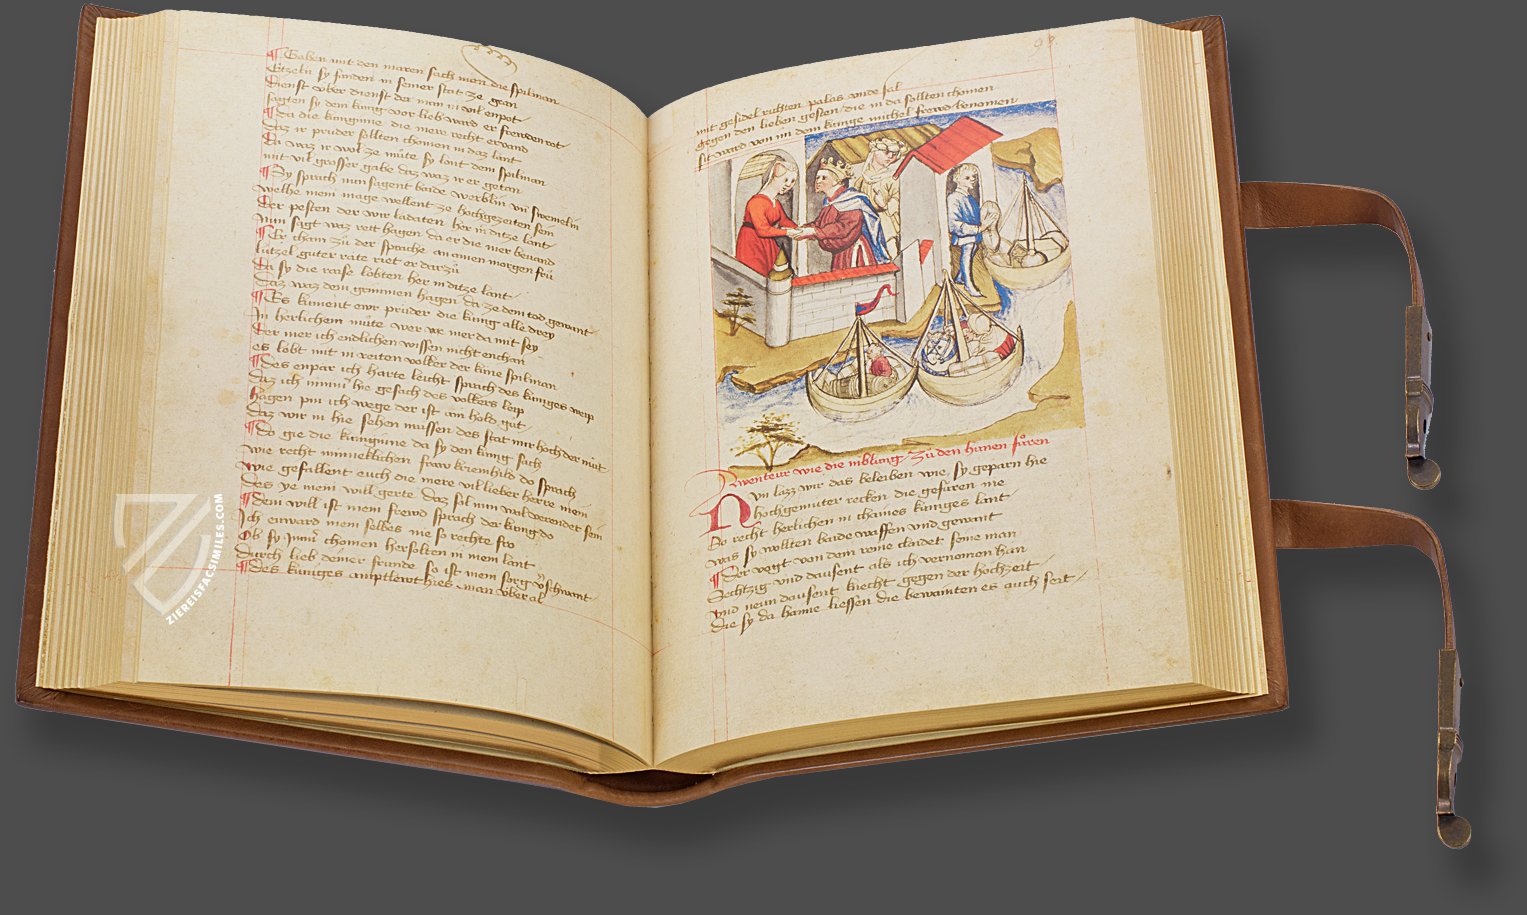 Gaben mit den maren sach man die spilman
Etzeln sy funden in seiner stat ze gran
Dienst vber dienst der man im vil enpot
sagten sy dem kunig vor lieb ward er frewden rot
da die kunginne die mere recht ervand
daz ir pruder sollten chomen in daz lant
do waz ir wol ze mute sy lont dem spilman
mit vil grosser gabe daz waz ir er getan
Sy sprach nun sagent baide werblin vn swemelin
welhe mein mage wellent ze hochgezeiten sein
Der pesten der wir ladaten her in ditze lant
Nun sagt waz rett hagen da er die mer bevand
Er cham zu der sprache an ainen morgen fru
lutzel guter rate riet er darzu
da sy die raise lobten her in ditze lant
daz waz dem grymmen hagen da ze dem tod genant
Es kument ewr pruder die kunig alle drey
In herlichem mute wer wr mer da mit sey
der mer ich endlichen wissen nicht enchan
es lobt mit in reiten volker der kune spilman
des enpar ich harte leicht sprach des kuniges weip
daz ich nimm hie gesach des volkers leip
hagen pin ich wege der ist ain hold gut
daz wir in hie sehen mussen des stat mir hoch der mut
do gie die kunginne da sy den kunig sach
wie recht minneklichen fraw kriemhild do sprach
wie gefallent euch die mere vil lieber herre mein
des ye mein will gerte daz sol nun volendet sein
dein will ist mein frewd sprach der kunig do
Ich enward mein selbes nie so rechte fro
Ob sy Immer chomen her solten in mein lant
durch lieb deiner frunde so ist mein sorg verschwant
des kuniges amptlewt hies man vber al
mit gesidel richten palas vnde sal
gegen den lieben gesten die in da sollten chomen
sit ward von im dem kunige michel frewd benomen
Awenteur wie die niblung zu den hunen furen
Nvn lazz wir das beleiben wie sy geparn hie
hochgemuter recken die gefuren nie
So recht herlichen in chaines kuniges lant
was sy wollten baide waffen vnd gewant
Der vogt von dem reine claidet seine man
Sechtzig vnd dausent als ich vernomen han
vnd neun dausent knecht gegen der hochzeit
die sy da haime liessen die bewainten es auch seit
ZIEREISFACSIMILES.COM